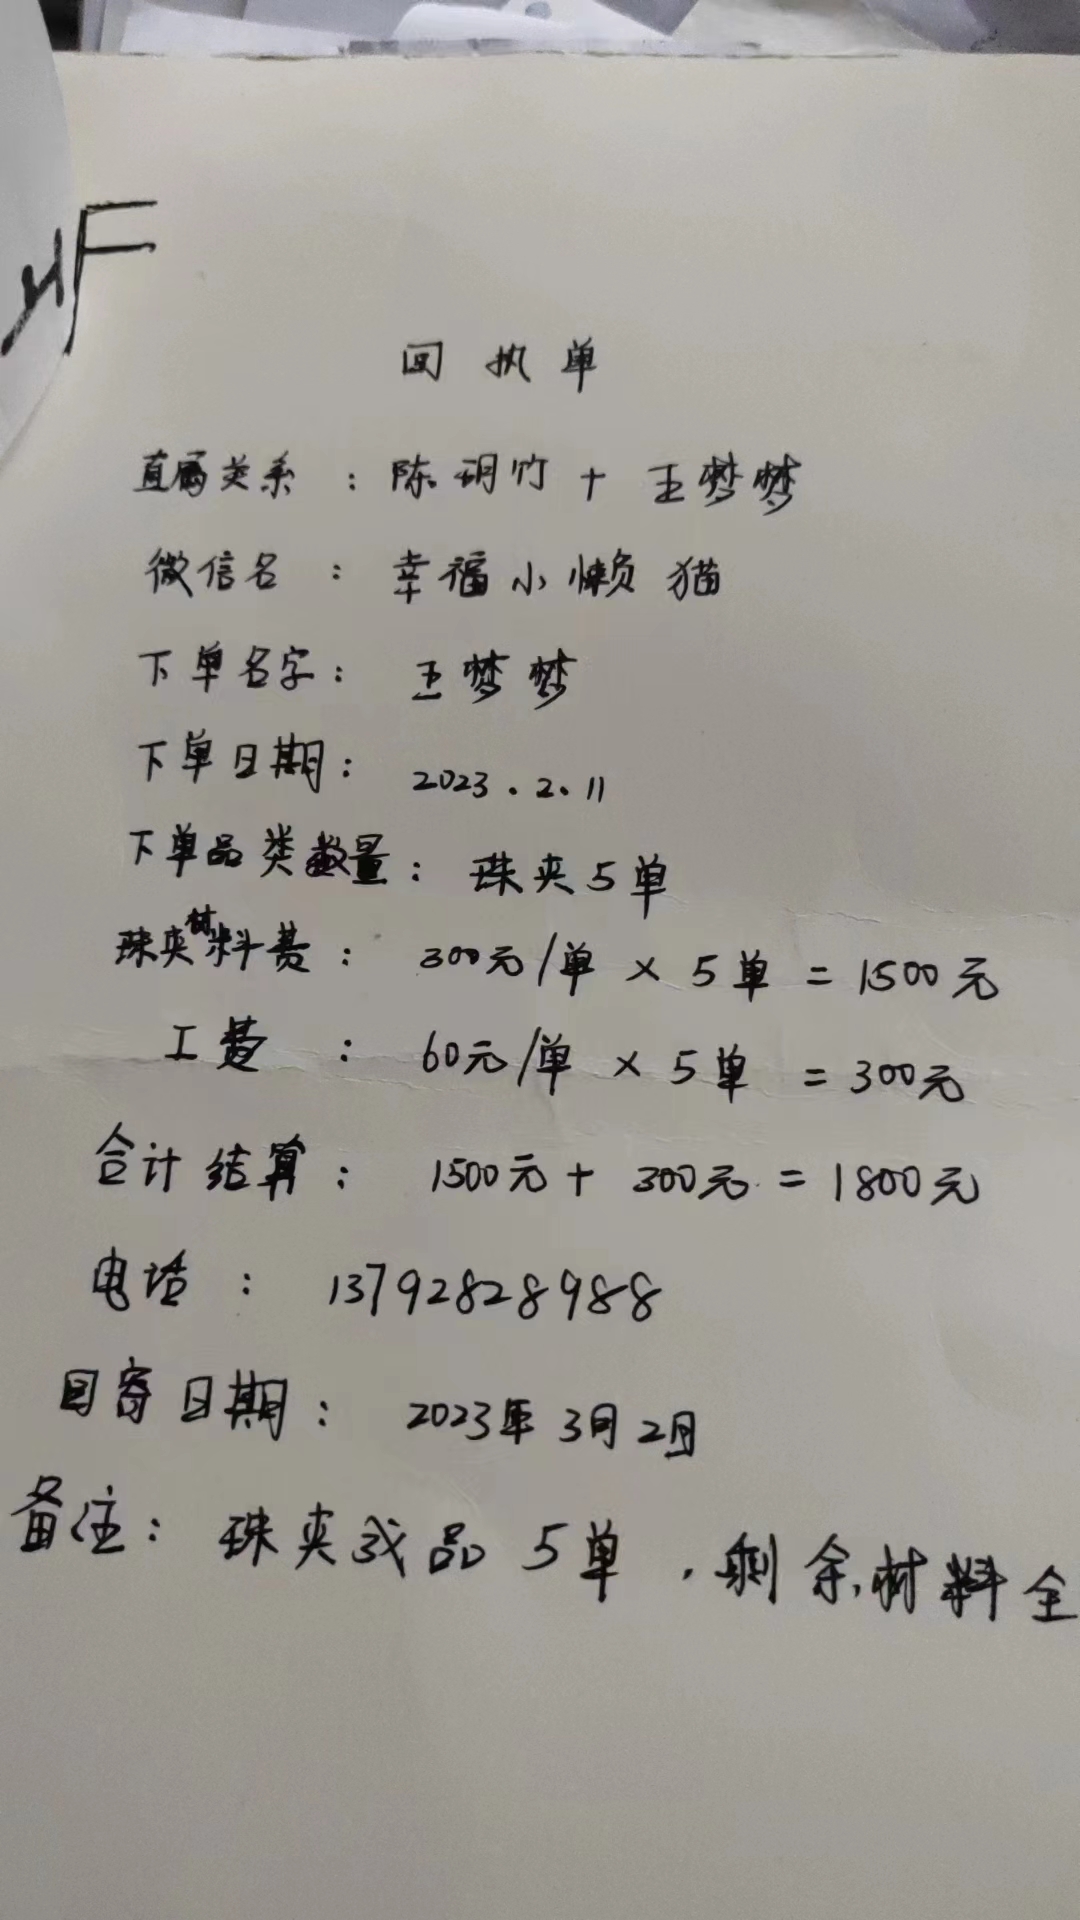 回执单
直属关系：陈玥竹＋王梦梦
微信名：幸福小懒猫
下单名字：王梦梦
下单日期：2023.2.11
下单品类数量：珠夹5单
珠夹材料费：300元/单×5单=1500元
工费：60元/单×5单=300元
合计结算：1500元+300元=1800元
电话：13792828988
回寄日期：2023年3月2日
备注：珠夹成品5单，剩余材料全